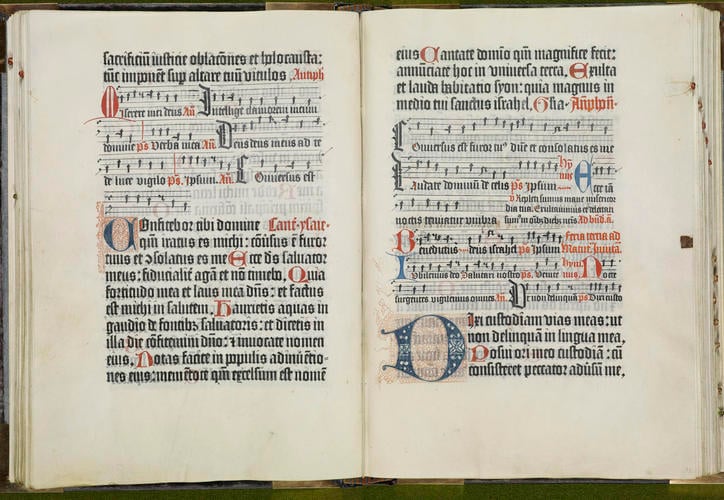 sacrificiū iusticie oblacōnes et holocausta:
tūc imponēt sup altare tuū vitulos. Antiph
Miserere mei deus Añ. Intellige clamorem meum
domine ps Verba mea Añ. Deus deus meus ad te
de luce vigilo Ps. Ipsum. Añ. Conuersus est
Confitebor tibi domine Cant. ysaie.
qm̄ iratus es michi: cōuersus ē furor
tuus et cōsolatus es me Ecce dūs saluator
meus: fiducialit̄ agā et nō timebo. Quia
fortitudo mea et laus mea dūs: et factus
est michi in salutem. Haurietis aquas in
gaudio de fontibꝫ saluatoris: et dicetis in
illa die cōfitemini dūo: et inuocate nomen
eius. Notas facite in populis adinuētio-
nes eius: memētote qm̄ excelsum est nomē
eius Cantate domīo qm̄ magnifice fecit:
annūciate hoc in vniuersa terra. Exulta
et lauda habitatio syon: quia magnus in
medio tui sanctus israhel. Glīa. Añphon.
Conuersus est furor tuꝰ dūe et consolatus es me
Laudate dominū de celis ps Ipsum hymnus Ecce iā
noctis tenuatur vmbra
Benedictus deus israhel ps Ipsum feria tercia ad
Iubilemus deo Salutari nostro ps. Venite hymnus. Nocte
surgentes vigilemus omnes Añ. Ut non delinquā ps Dixi custo
Dixi custodiam vias meas: ut
non delinquā in lingua mea.
Posui ori meo custodiā: cū
consisteret peccator aduersū me.